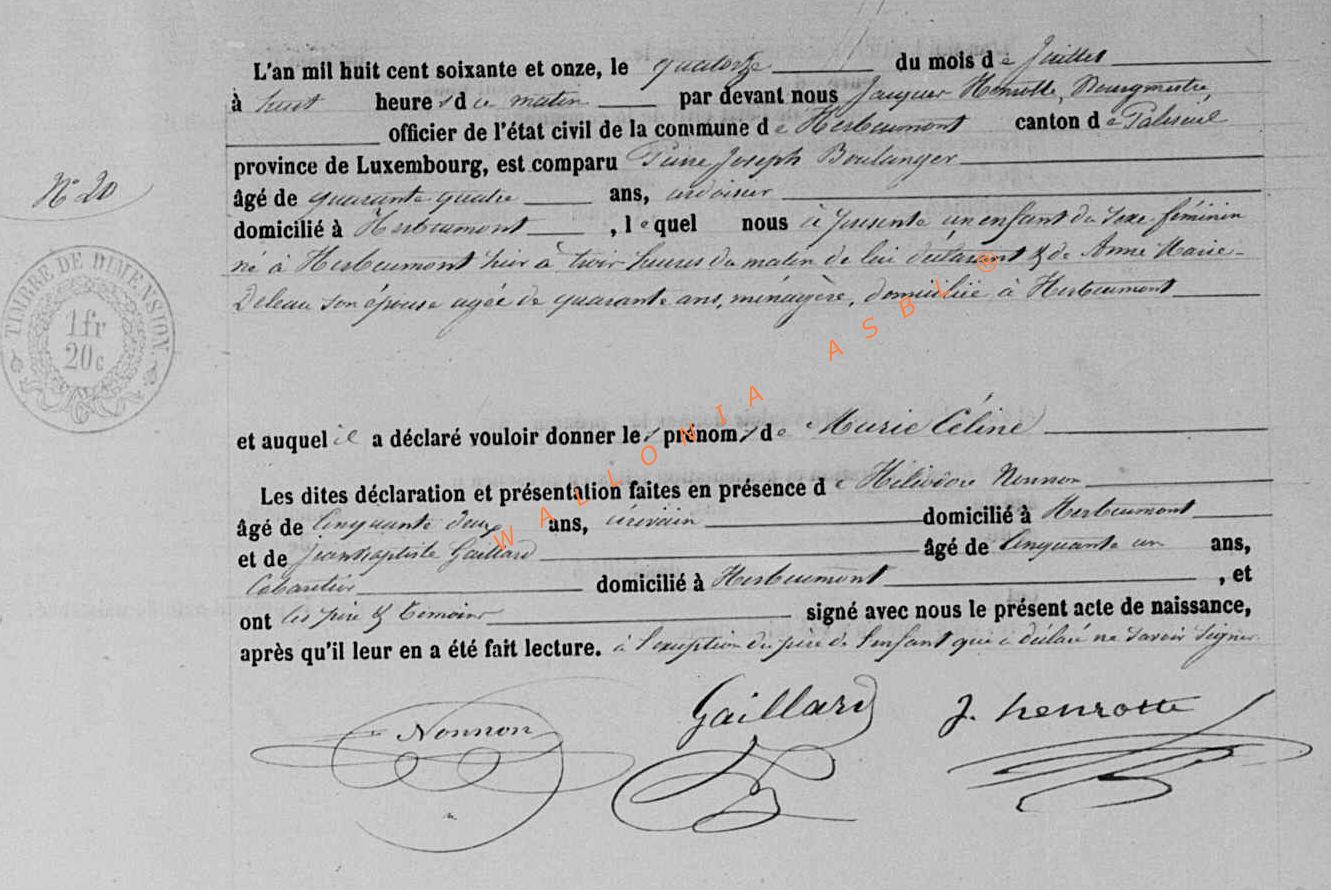 L'an mil huit cent soixante et onze, le quatorze du mois de Juillet
à huit heures du matin par devant nous Jacques Henrotte, Bourgmestre,
officier de l'état civil de la commune de Herbeumont canton de Paliseul
province de Luxembourg, est comparu Pierre Joseph Boulanger
N° 20
âgé de quarante quatre ans, ardoisier
domicilié à Herbeumont, lequel nous à présenté un enfant du sexe féminin
né à Herbeumont hier à trois heures du matin de lui déclarant & de Anne Marie
Deleau son épouse agée de quarante ans, ménagère, domiciliée à Herbeumont
TIMBRE DE DIMENSION
1 fr
20 c
et auquel il a déclaré vouloir donner les prénoms de Marie Céline
Les dites déclaration et présentation faites en présence de Héliodore Nonnon
âgé de Cinquante deux ans, écrivain domicilié à Herbeumont
et de Jean Baptiste Gaillard âgé de Cinquante un ans,
Cabaretier domicilié à Herbeumont, et
ont les père & témoins signé avec nous le présent acte de naissance,
après qu'il leur en a été fait lecture. à l'exception du père de l'enfant qui a déclaré ne savoir signer
Nonnon Gaillard J. henrotte
WALLONIA ASBL ®